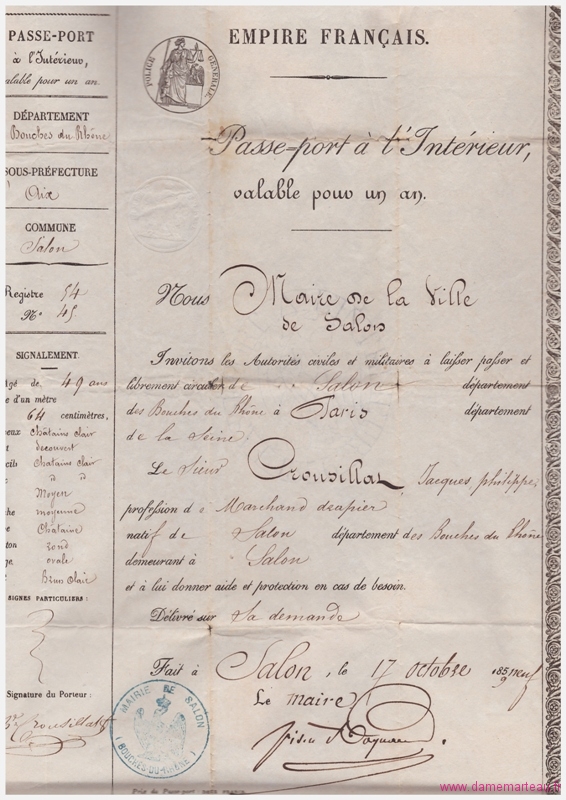 PASSE-PORT
à l'Intérieur,
valable pour un an.
DÉPARTEMENT
Bouches du Rhône
SOUS-PRÉFECTURE
Aix
COMMUNE
Salon
Registre 54
N.° 45
SIGNALEMENT.
Agé de 49 ans
d'un mètre
64 centimètres,
Chatains clair
decouvert
Chatains clair
Moyen
moyenne
Chataine
rond
ovale
Brun Clair
SIGNES PARTICULIERS :
Signature du Porteur :
Crousillat
EMPIRE FRANÇAIS.
POLICE GÉNÉRALE
Passe-port à l'Intérieur,
valable pour un an.
Nous Maire de la Ville
de Salon
Invitons les Autorités civiles et militaires à laisser passer et
librement circuler de Salon département
des Bouches du Rhône à Paris département
de la Seine.
Le Sieur Crousillat, Jacques philippe,
profession de Marchand drapier
natif de Salon département des Bouches du Rhône
demeurant à Salon
et à lui donner aide et protection en cas de besoin.
Délivré sur Sa demande
Fait à Salon, le 17 octobre 185 neuf
Le maire
MAIRIE DE SALON
(BOUCHES-DU-RHÔNE)
Prix du Passe-port : DEUX FRANCS.
www.damemarteau.fr